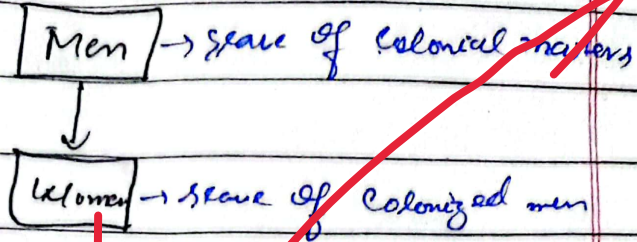 Men → slave of colonial masters
Women → slave of colonized men